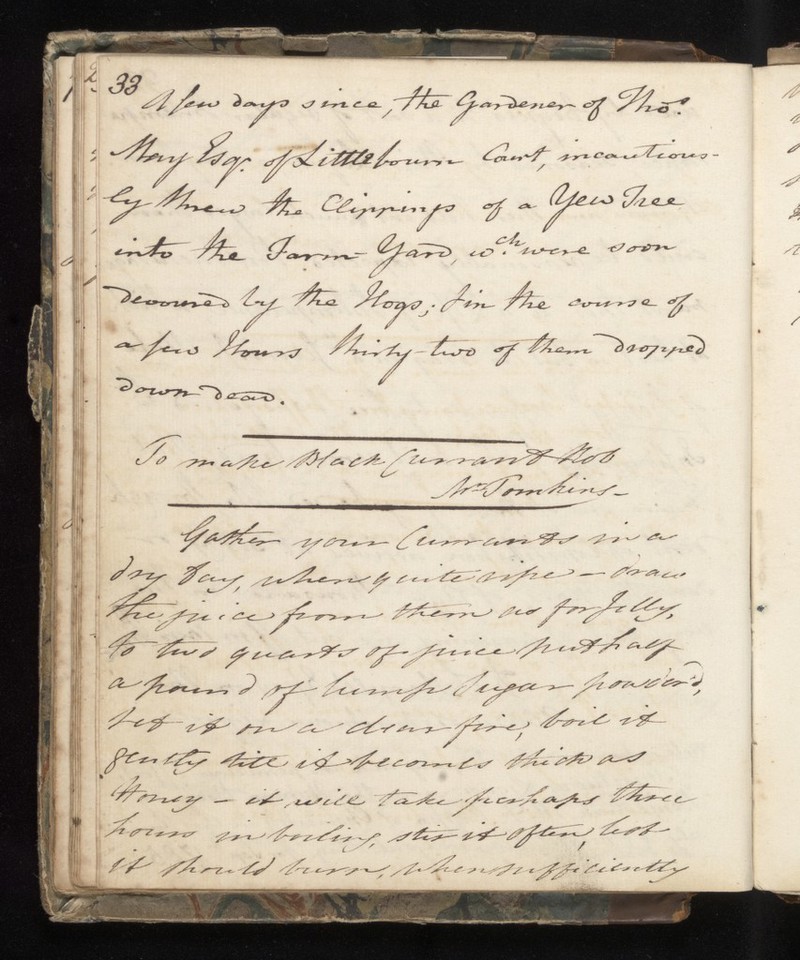 33
A few days since, the Gardener of Thos.
May Esqr. of Littlebourn Court, incautious-
ly threw the Clippings of a Yew Tree
into the Farm-Yard, wch. were soon
devoured by the Hogs; & in the course of
a few Hours thirty-two of them dropped
down dead.
To make Black Currant Rob
Mrs Tomkins-
Gather your Currants in a
dry day, when quite ripe - draw
the juice from them as for Jelly,
to two quarts of juice put half
a pound of lump Sugar powder'd,
set it on a clear fire, boil it
gently till it becomes thick as
Honey - it will take perhaps three
hours in boiling, stir it often, lest
it should burn, when sufficiently